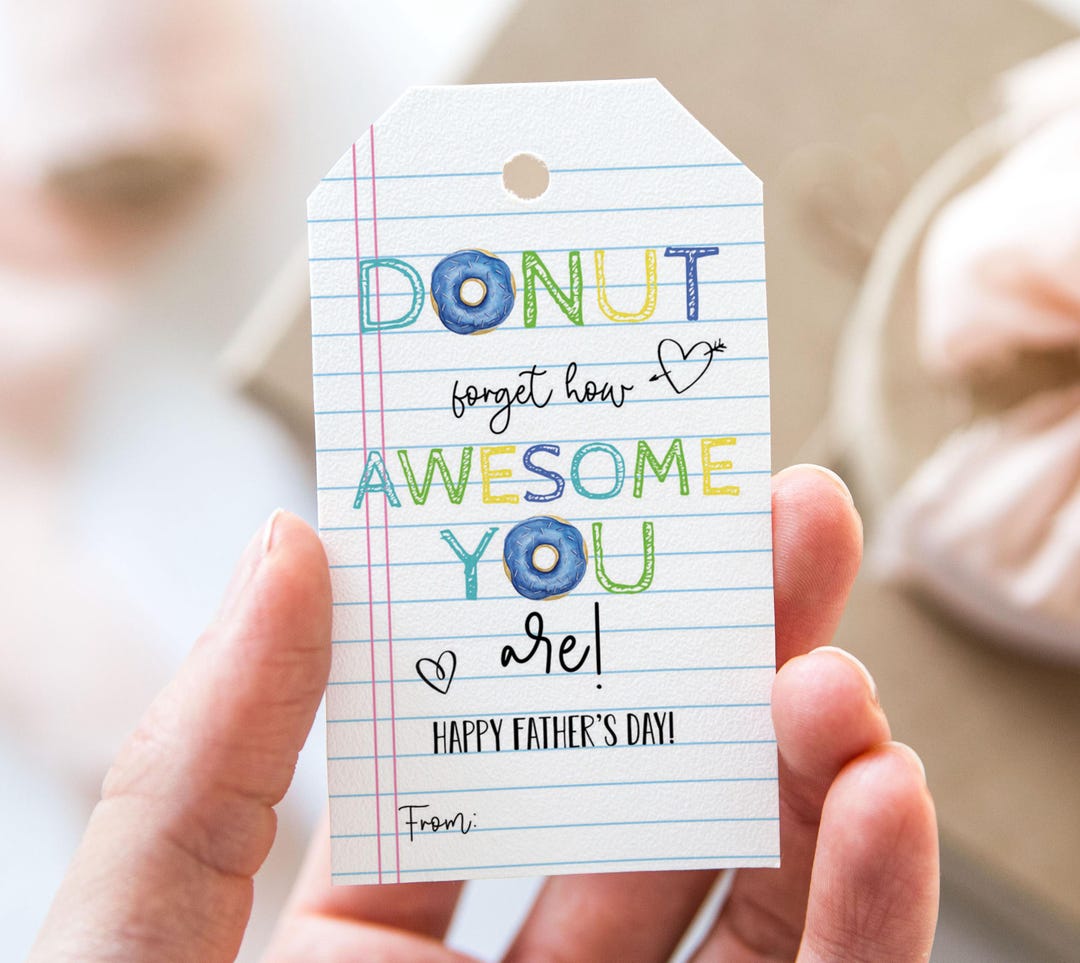 DONUT
forget how
AWESOME
YOU
are!
HAPPY FATHER'S DAY!
From: